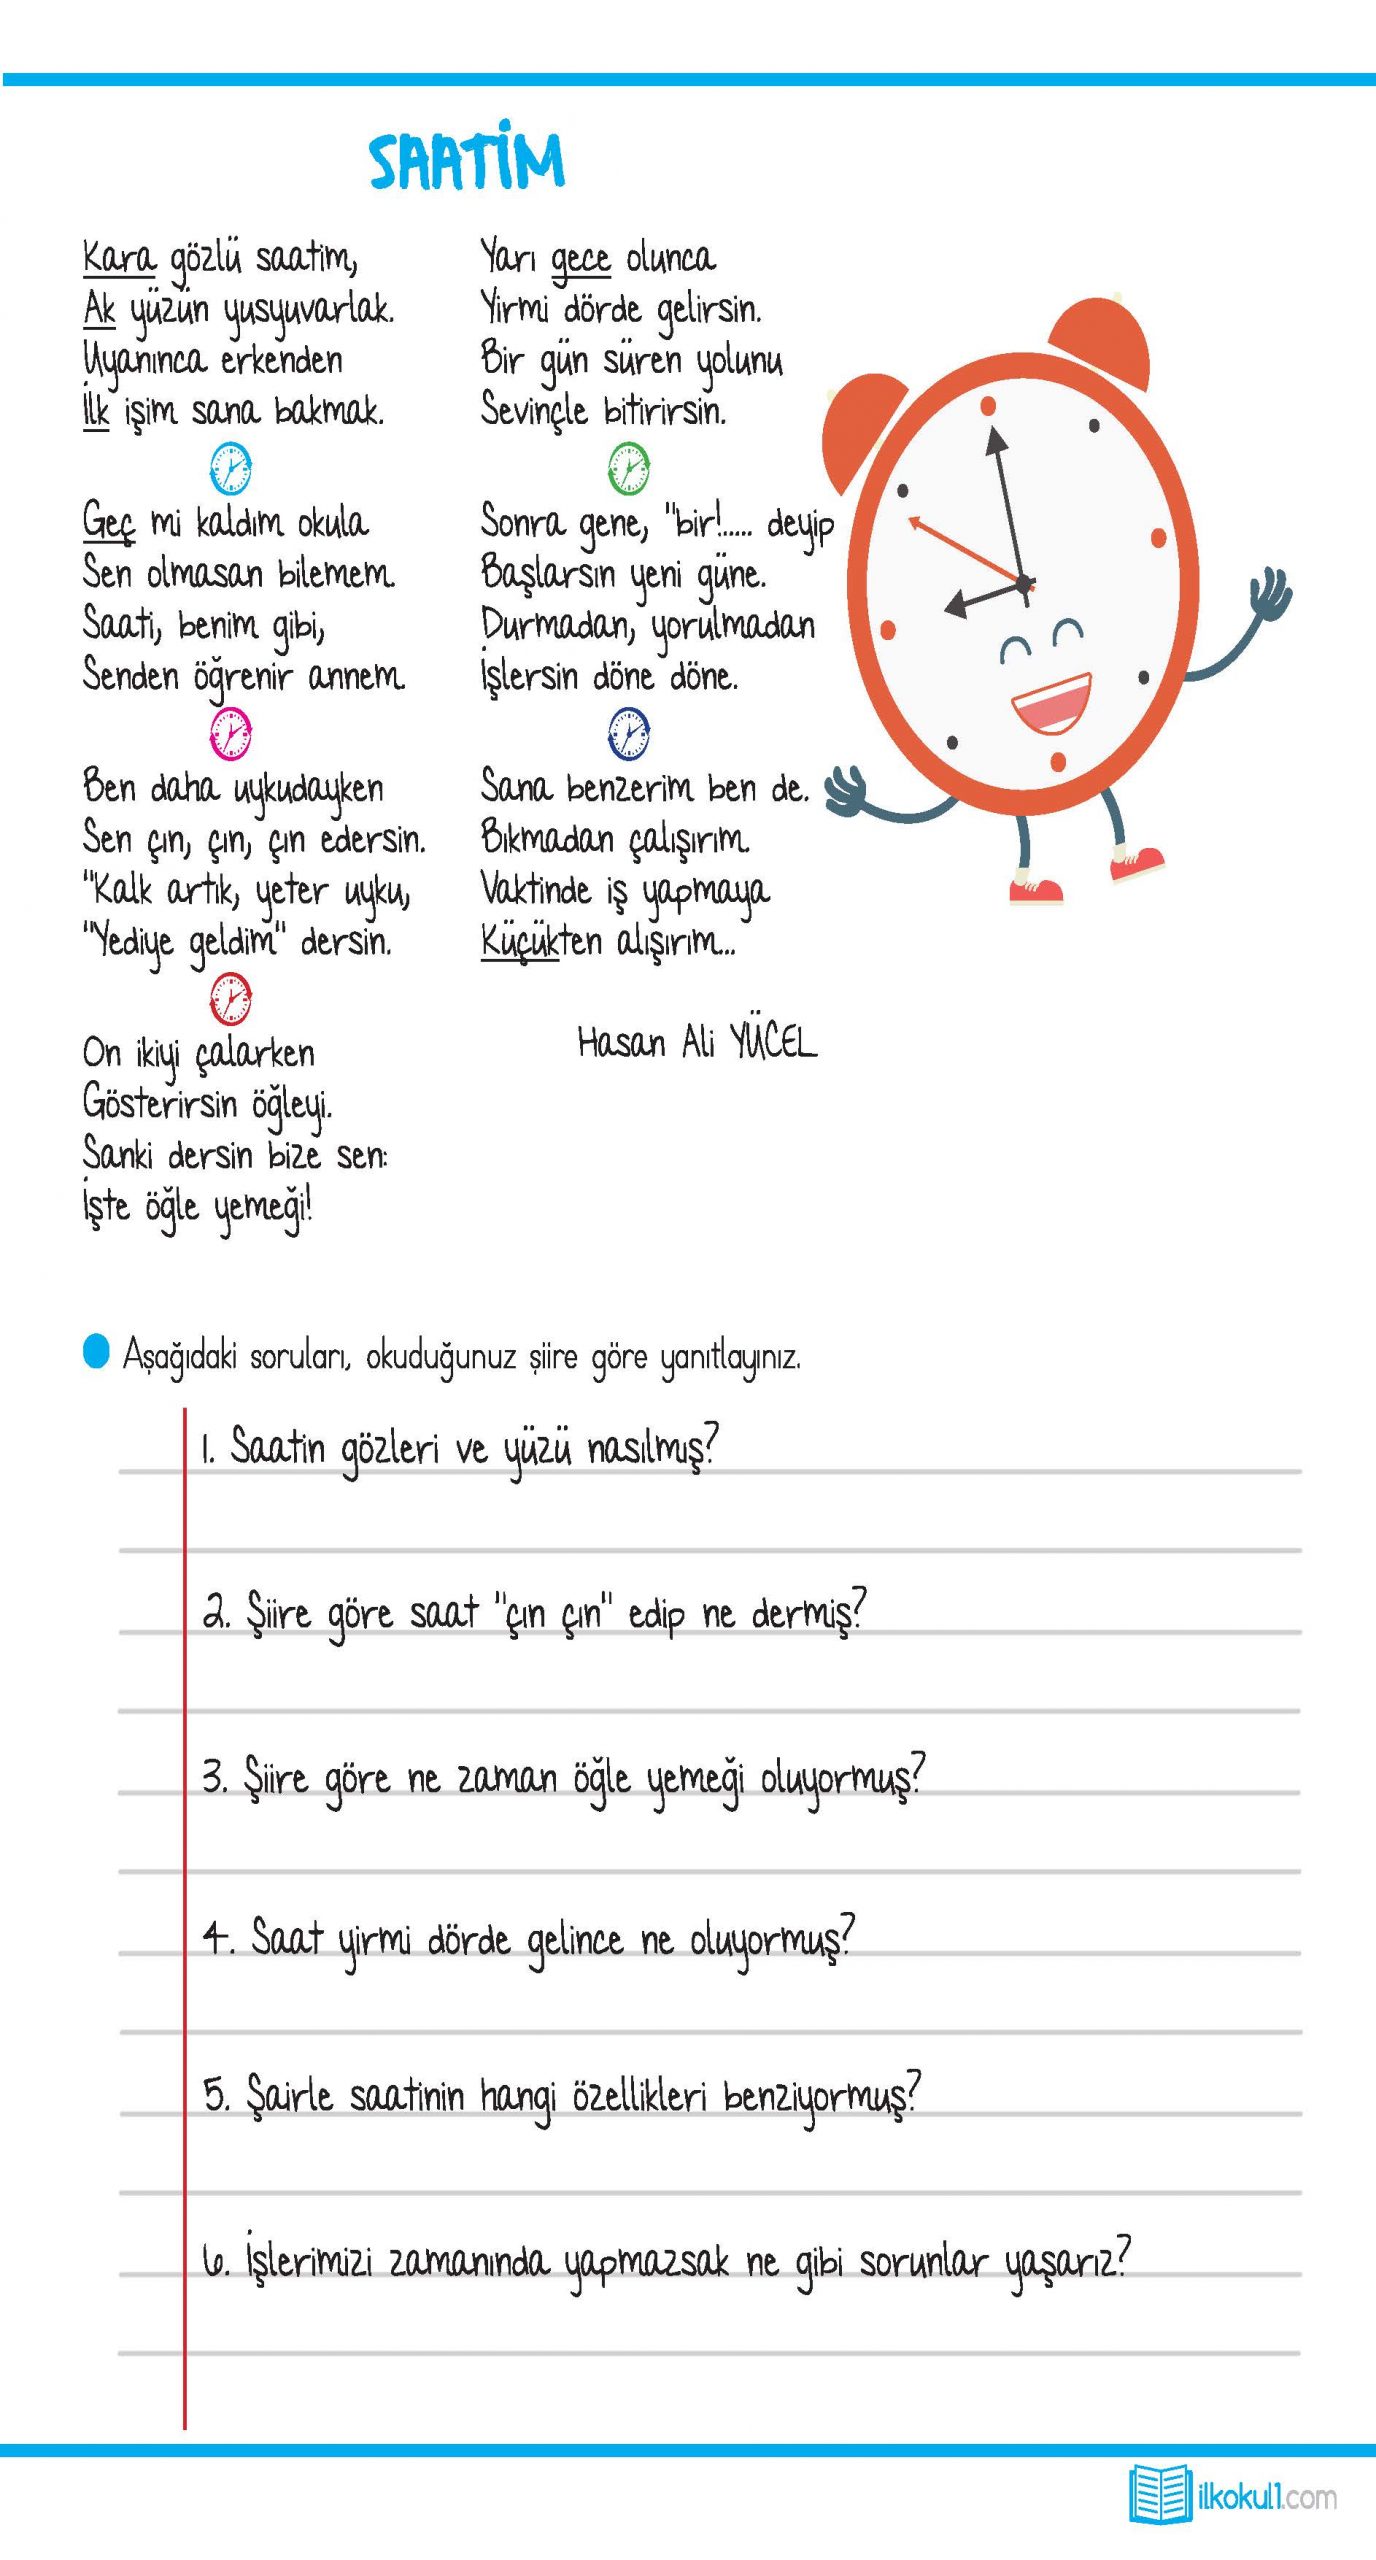 SAATİM
Kara gözlü saatim,
Ak yüzün yusyuvarlak.
Uyanınca erkenden
İlk işim sana bakmak.
Geç mi kaldım okula
Sen olmasan bilemem.
Saati, benim gibi,
Senden öğrenir annem.
Ben daha uykudayken
Sen çın, çın, çın edersin.
"Kalk artık, yeter uyku,
"Yediye geldim" dersin.
On ikiyi çalarken
Gösterirsin öğleyi.
Sanki dersin bize sen:
İşte öğle yemeği!
Yarı gece olunca
Yirmi dörde gelirsin.
Bir gün süren yolunu
Sevinçle bitirirsin.
Sonra gene, "bir!..... deyip
Başlarsın yeni güne.
Durmadan, yorulmadan
İşlersin döne döne.
Sana benzerim ben de.
Bıkmadan çalışırım.
Vaktinde iş yapmaya
Küçükten alışırım...
Hasan Ali YÜCEL
Aşağıdaki soruları, okuduğunuz şiire göre yanıtlayınız.
1. Saatin gözleri ve yüzü nasılmış?
2. Şiire göre saat "çın çın" edip ne dermiş?
3. Şiire göre ne zaman öğle yemeği oluyormuş?
4. Saat yirmi dörde gelince ne oluyormuş?
5. Şairle saatinin hangi özellikleri benziyormuş?
6. İşlerimizi zamanında yapmazsak ne gibi sorunlar yaşarız?
ilkokul1.com